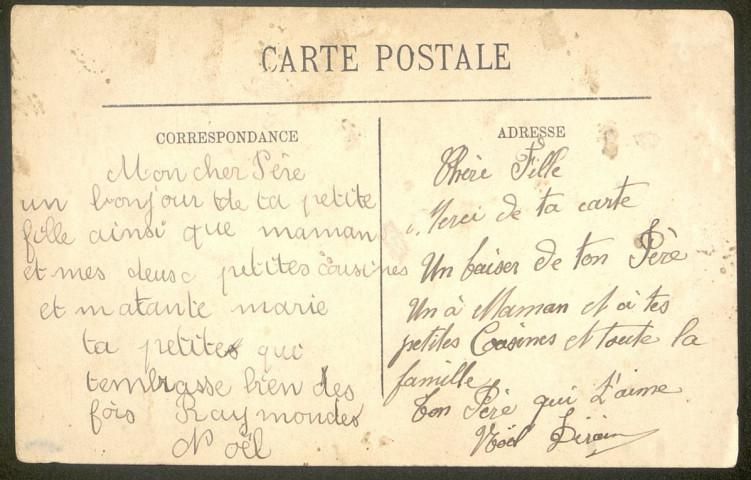 CARTE POSTALE
CORRESPONDANCE
Mon cher Père
un bonjour de ta petite
fille ainsi que maman
et mes deusc petites cousines
et matante marie
ta petite qui
tembrasse bien des
fois Raymonde
Noël
ADRESSE
Chère Fille
Merci de ta carte
Un baiser de ton Père
Un à Maman et à tes
petites Cousines et toute la
famille
Ton Père qui t'aime
Noël